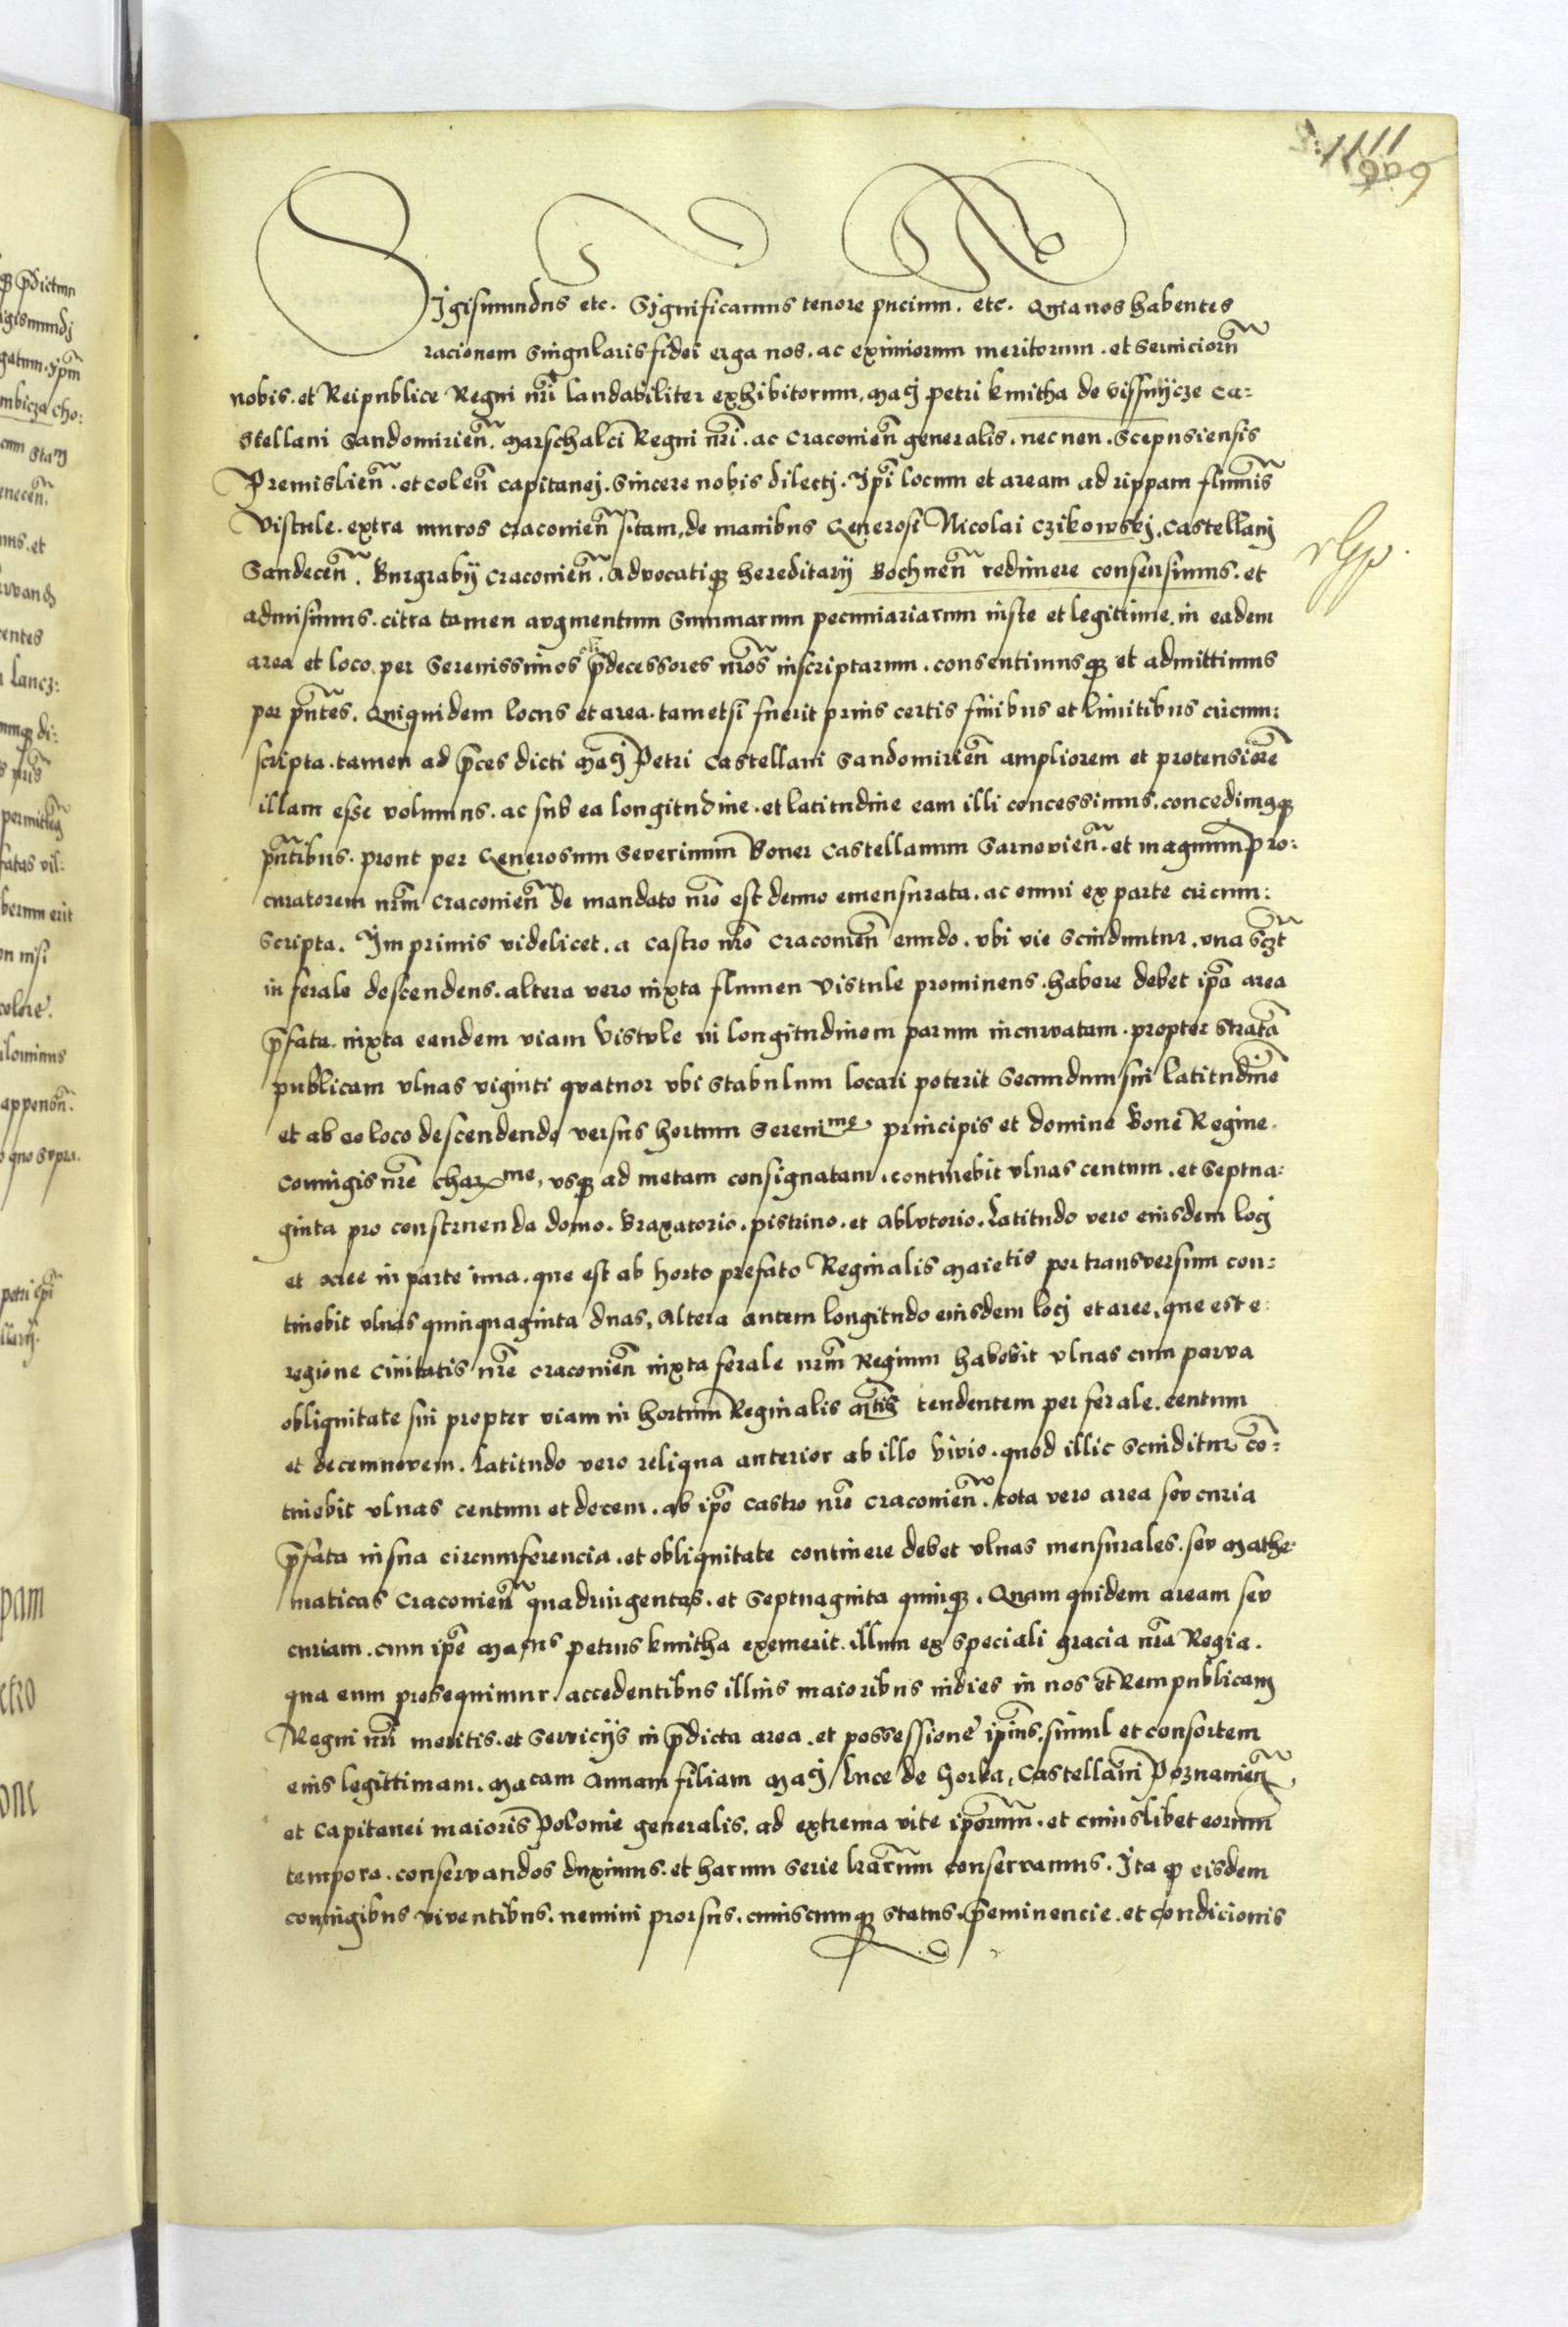 Sigismundus etc. Significamus tenore pñcium. etc. Quia nos habentes
racionem singularis fidei erga nos. ac eximiorum meritorum. et serviciorũ
nobis. et Reipublice Regni nr̃i laudabiliter exhibitorum, Maci petri kmitha de vissnijcze Ca:
stellani Sandomirieñ. Marschalci Regni nr̃i. ac Craconieñ generalis. necnon. Scepusiensis
Premislieñ. et Coleñ capitanej. Sincere nobis dilectj. Ip̃i locum et aream ad rippam flumĩs
Vistule. extra muros Craconieñ sitam, de manibus Generosi Nicolai Czikowskj. Castellanj
Sandeceñ. Burgrabij Craconieñ. Advocatiq3 hereditarij Bochneñ redimere consensimus. et
admisimus. citra tamen avgmentum summarum pecuniariarum iuste et legittime, in eadem
area et loco per Serenissimos p̃decessores nr̃os inscriptarum. consentimusq3 et admittimus
per pñtes. Quiquidem locus et area. tametsi fuerit prius certis finibus et limitibus circum:
scripta. tamen ad p̃ces dicti Maci Petri Castellani Sandomirieñ ampliorem et protensiorẽ
illam esse volumus. ac sub ea longitudine. et latitudine eam illi concessimus. concedimusq3
pñtibus. prout per Generosum Severinum Boner Castellanum Sarnovieñ. et magnum pro:
curatorem nr̃m Craconieñ de mandato nr̃o est denuo emensurata. ac omni ex parte circum:
scripta. Imprimis videlicet. a castro nr̃o Craconieñ eundo. vbi vie scinduntur. vna sczt̃
in ferale descendens. altera vero iuxta flumen Vistule prominens. habere debet ip̃a area
p̃fata. iuxta eandem viam Vistule in longitudinem parum incurvatam. propter stratã
publicam vlnas viginti qvatuor vbi stabulum locari poterit secundum sui latitudinẽ
et ab eo loco descendendo versus hortum Serenime principis et domine Bone Regine.
Coniugis nr̃e charme, vsq3 ad metam consignatam. continebit vlnas centum. et septua:
ginta pro construenda domo. Braxatorio. pistrino. et Ablvtorio. Latitudo vero eiusdem locj
et aree in parte ima. que est ab horto prefato Reginalis Maietis per transversum con:
tinebit vlnas quinquaginta duas, Altera autem longitudo eiusdem locj et aree, que est e
regione Civitatis nr̃e Craconieñ iuxta ferale nr̃m Regium habebit vlnas cum parva
obliquitate sui propter viam in hortum Reginalis Mt̃is tendentem per ferale. centum
et decemnovem. Latitudo vero reliqua anterior ab illo bivio. quod illic scinditur cõ:
tinebit vlnas centum et decem. ab ip̃o castro nr̃o Craconieñ. tota vero area sev curia
p̃fata in sua circumferencia. et obliquitate continere debet vlnas mensurales. sev Mathe:
maticas Craconieñ quadringentas. et septuaginta quinq3. Quam quidem aream sev
curiam. cum ip̃e Macus petrus kmitha exemerit. illum ex speciali gracia nr̃a Regia.
qua eum prosequimur. accedentibus illius maioribus indies in nos et Rempublicam
Regni nr̃i meritis. et serviciis in p̃dicta area. et possessione ip̃ius. simul et consortem
eius legittimam. Macam Annam filiam Maci Luce de Gorka, Castellani Poznanieñ
et Capitanei maioris Polonie generalis, ad extrema vite ip̃orum. et cuiuslibet eorum
tempora. conservandos duximus. et harum serie lr̃arum conservamus. Ita q3 eisdem
coniugibus viventibus. nemini prorsus. cuiuscumq3 status. p̃eminencie. et condicionis